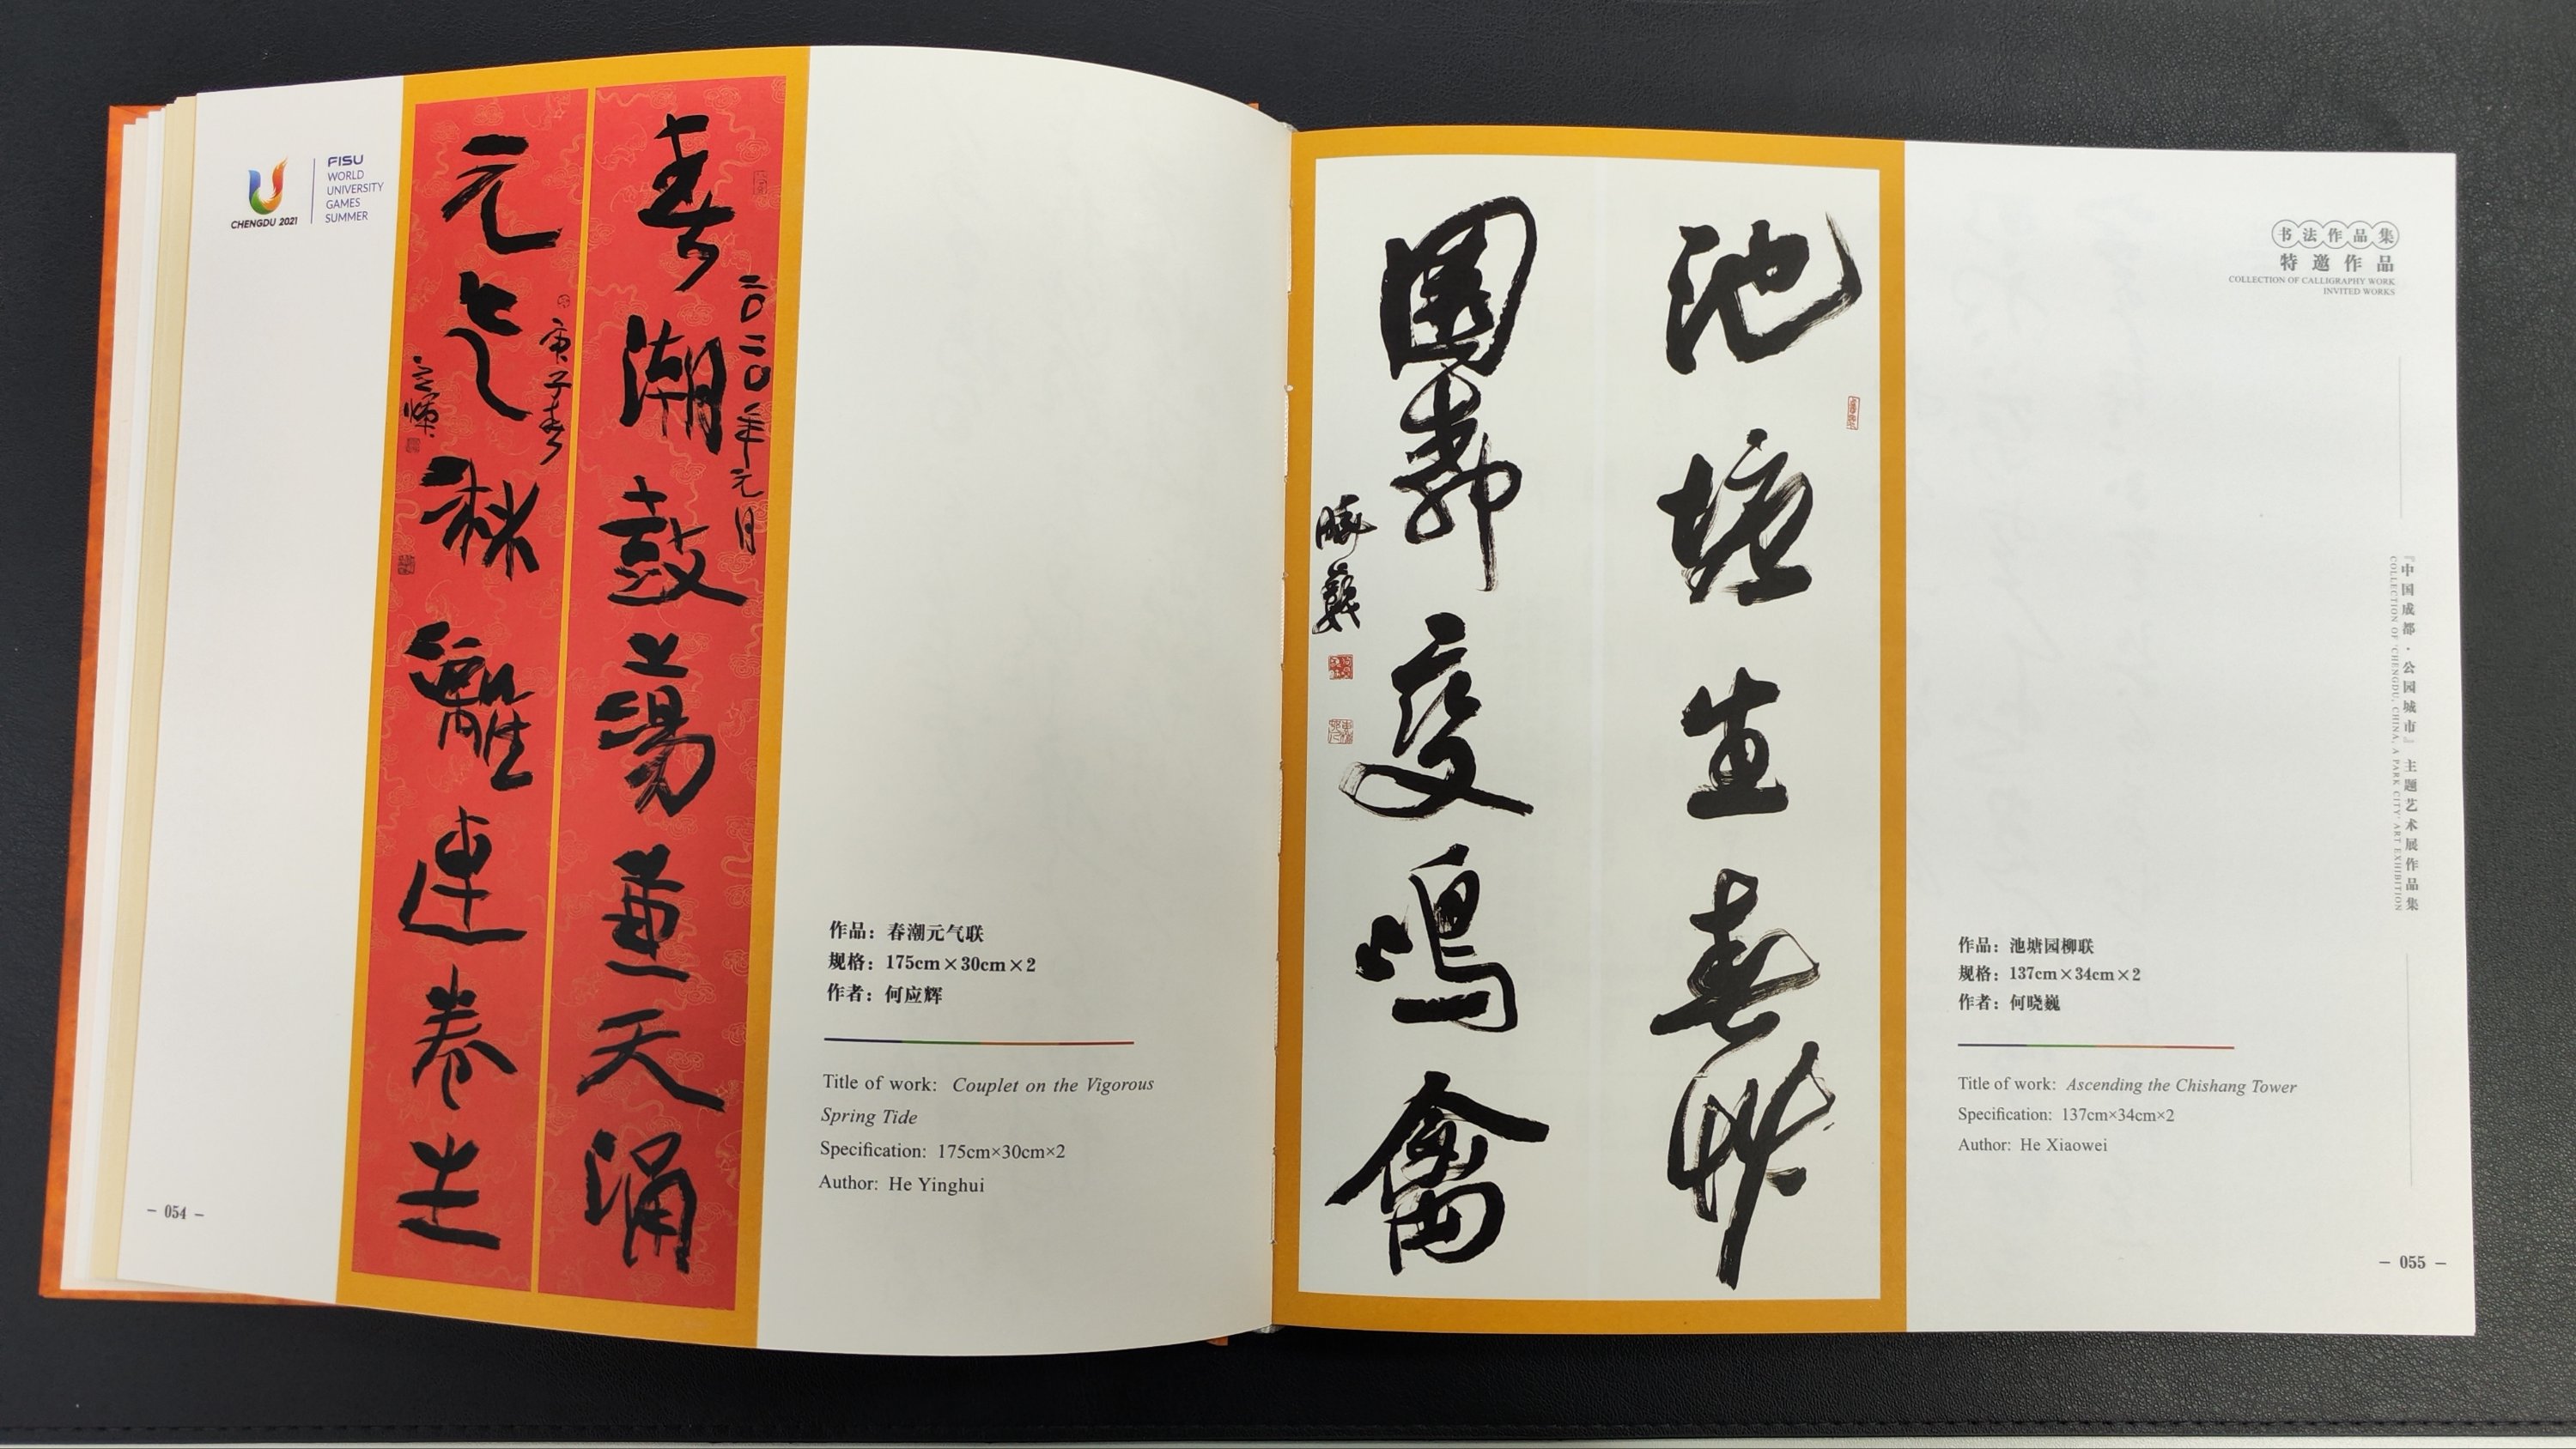 CHENGDU 2021
FISU
WORLD
UNIVERSITY
GAMES
SUMMER
春潮鼓荡兼天涌
二〇二〇年元月
元气淋漓連卷生
庚子春
应辉
作品：春潮元气联
规格：175cm×30cm×2
作者：何应辉
Title of work: Couplet on the Vigorous
Spring Tide
Specification: 175cm×30cm×2
Author: He Yinghui
— 054 —
池塘生春草
園柳变鳴禽
晓巍
书法作品集
特邀作品
COLLECTION OF CALLIGRAPHY WORK
INVITED WORKS
『中国成都·公园城市』主题艺术展作品集
COLLECTION OF 'CHENGDU, CHINA, A PARK CITY' ART EXHIBITION
作品：池塘园柳联
规格：137cm×34cm×2
作者：何晓巍
Title of work: Ascending the Chishang Tower
Specification: 137cm×34cm×2
Author: He Xiaowei
— 055 —